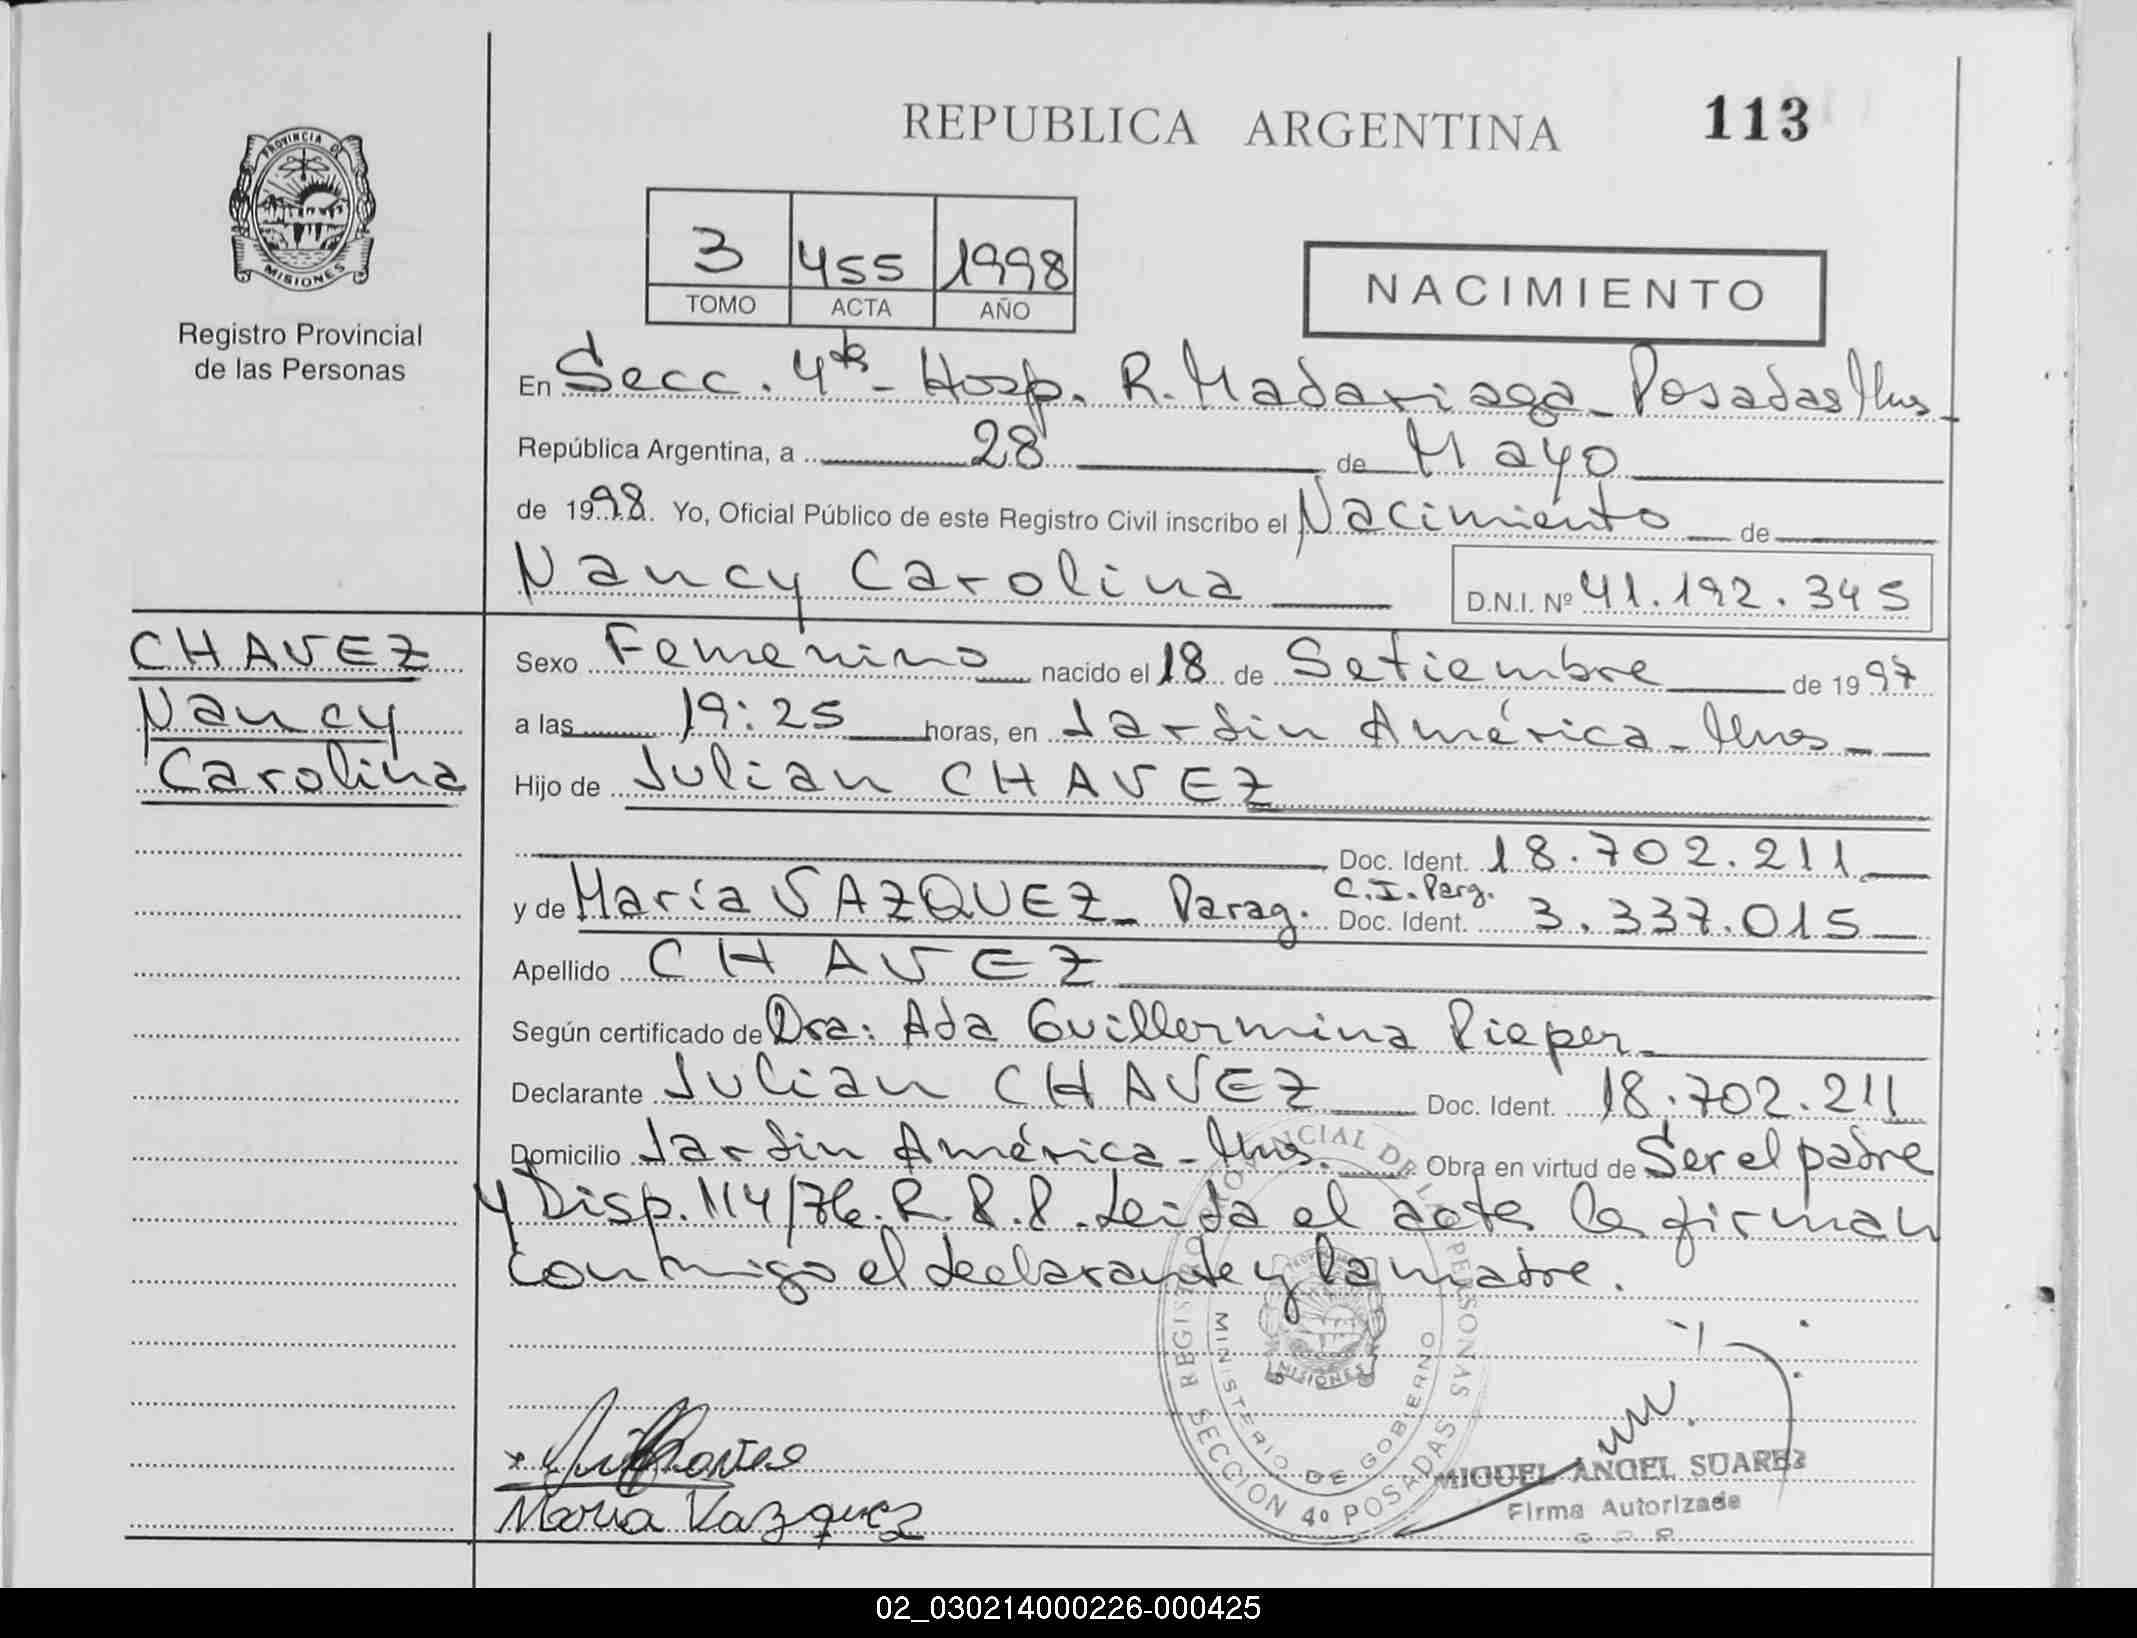 REPUBLICA ARGENTINA 113
PROVINCIA DE
MISIONES
Registro Provincial
de las Personas
3 455 1998
TOMO ACTA AÑO
NACIMIENTO
En Secc. 4ta - Hosp. R. Madariaga - Posadas Mns -
República Argentina, a 28 de Mayo
de 1998. Yo, Oficial Público de este Registro Civil inscribo el Nacimiento de
Nancy Carolina D.N.I. Nº 41.192.345
CHAVEZ
Nancy
Carolina
Sexo Femenino nacido el 18 de Setiembre de 1997
a las 19:25 horas, en Jardin América - Mnes -
Hijo de Julian CHAVEZ
Doc. Ident. 18.702.211
y de María VAZQUEZ - Parag. C.I. Parg. Doc. Ident. 3.337.015
Apellido CHAVEZ
Según certificado de Dra: Ada Guillermina Pieper
Declarante Julian CHAVEZ Doc. Ident. 18.702.211
Domicilio Jardin América - Mns. Obra en virtud de Ser el padre
y Disp. 114/76. R.P.P. Leida el acta la firman
conmigo el declarante y la madre.
REGISTRO PROVINCIAL DE LAS PERSONAS
MINISTERIO DE GOBIERNO
MISIONES
SECCION 4º POSADAS
Maria Vazquez
MIGUEL ANGEL SUAREZ
Firma Autorizada
02_030214000226-000425